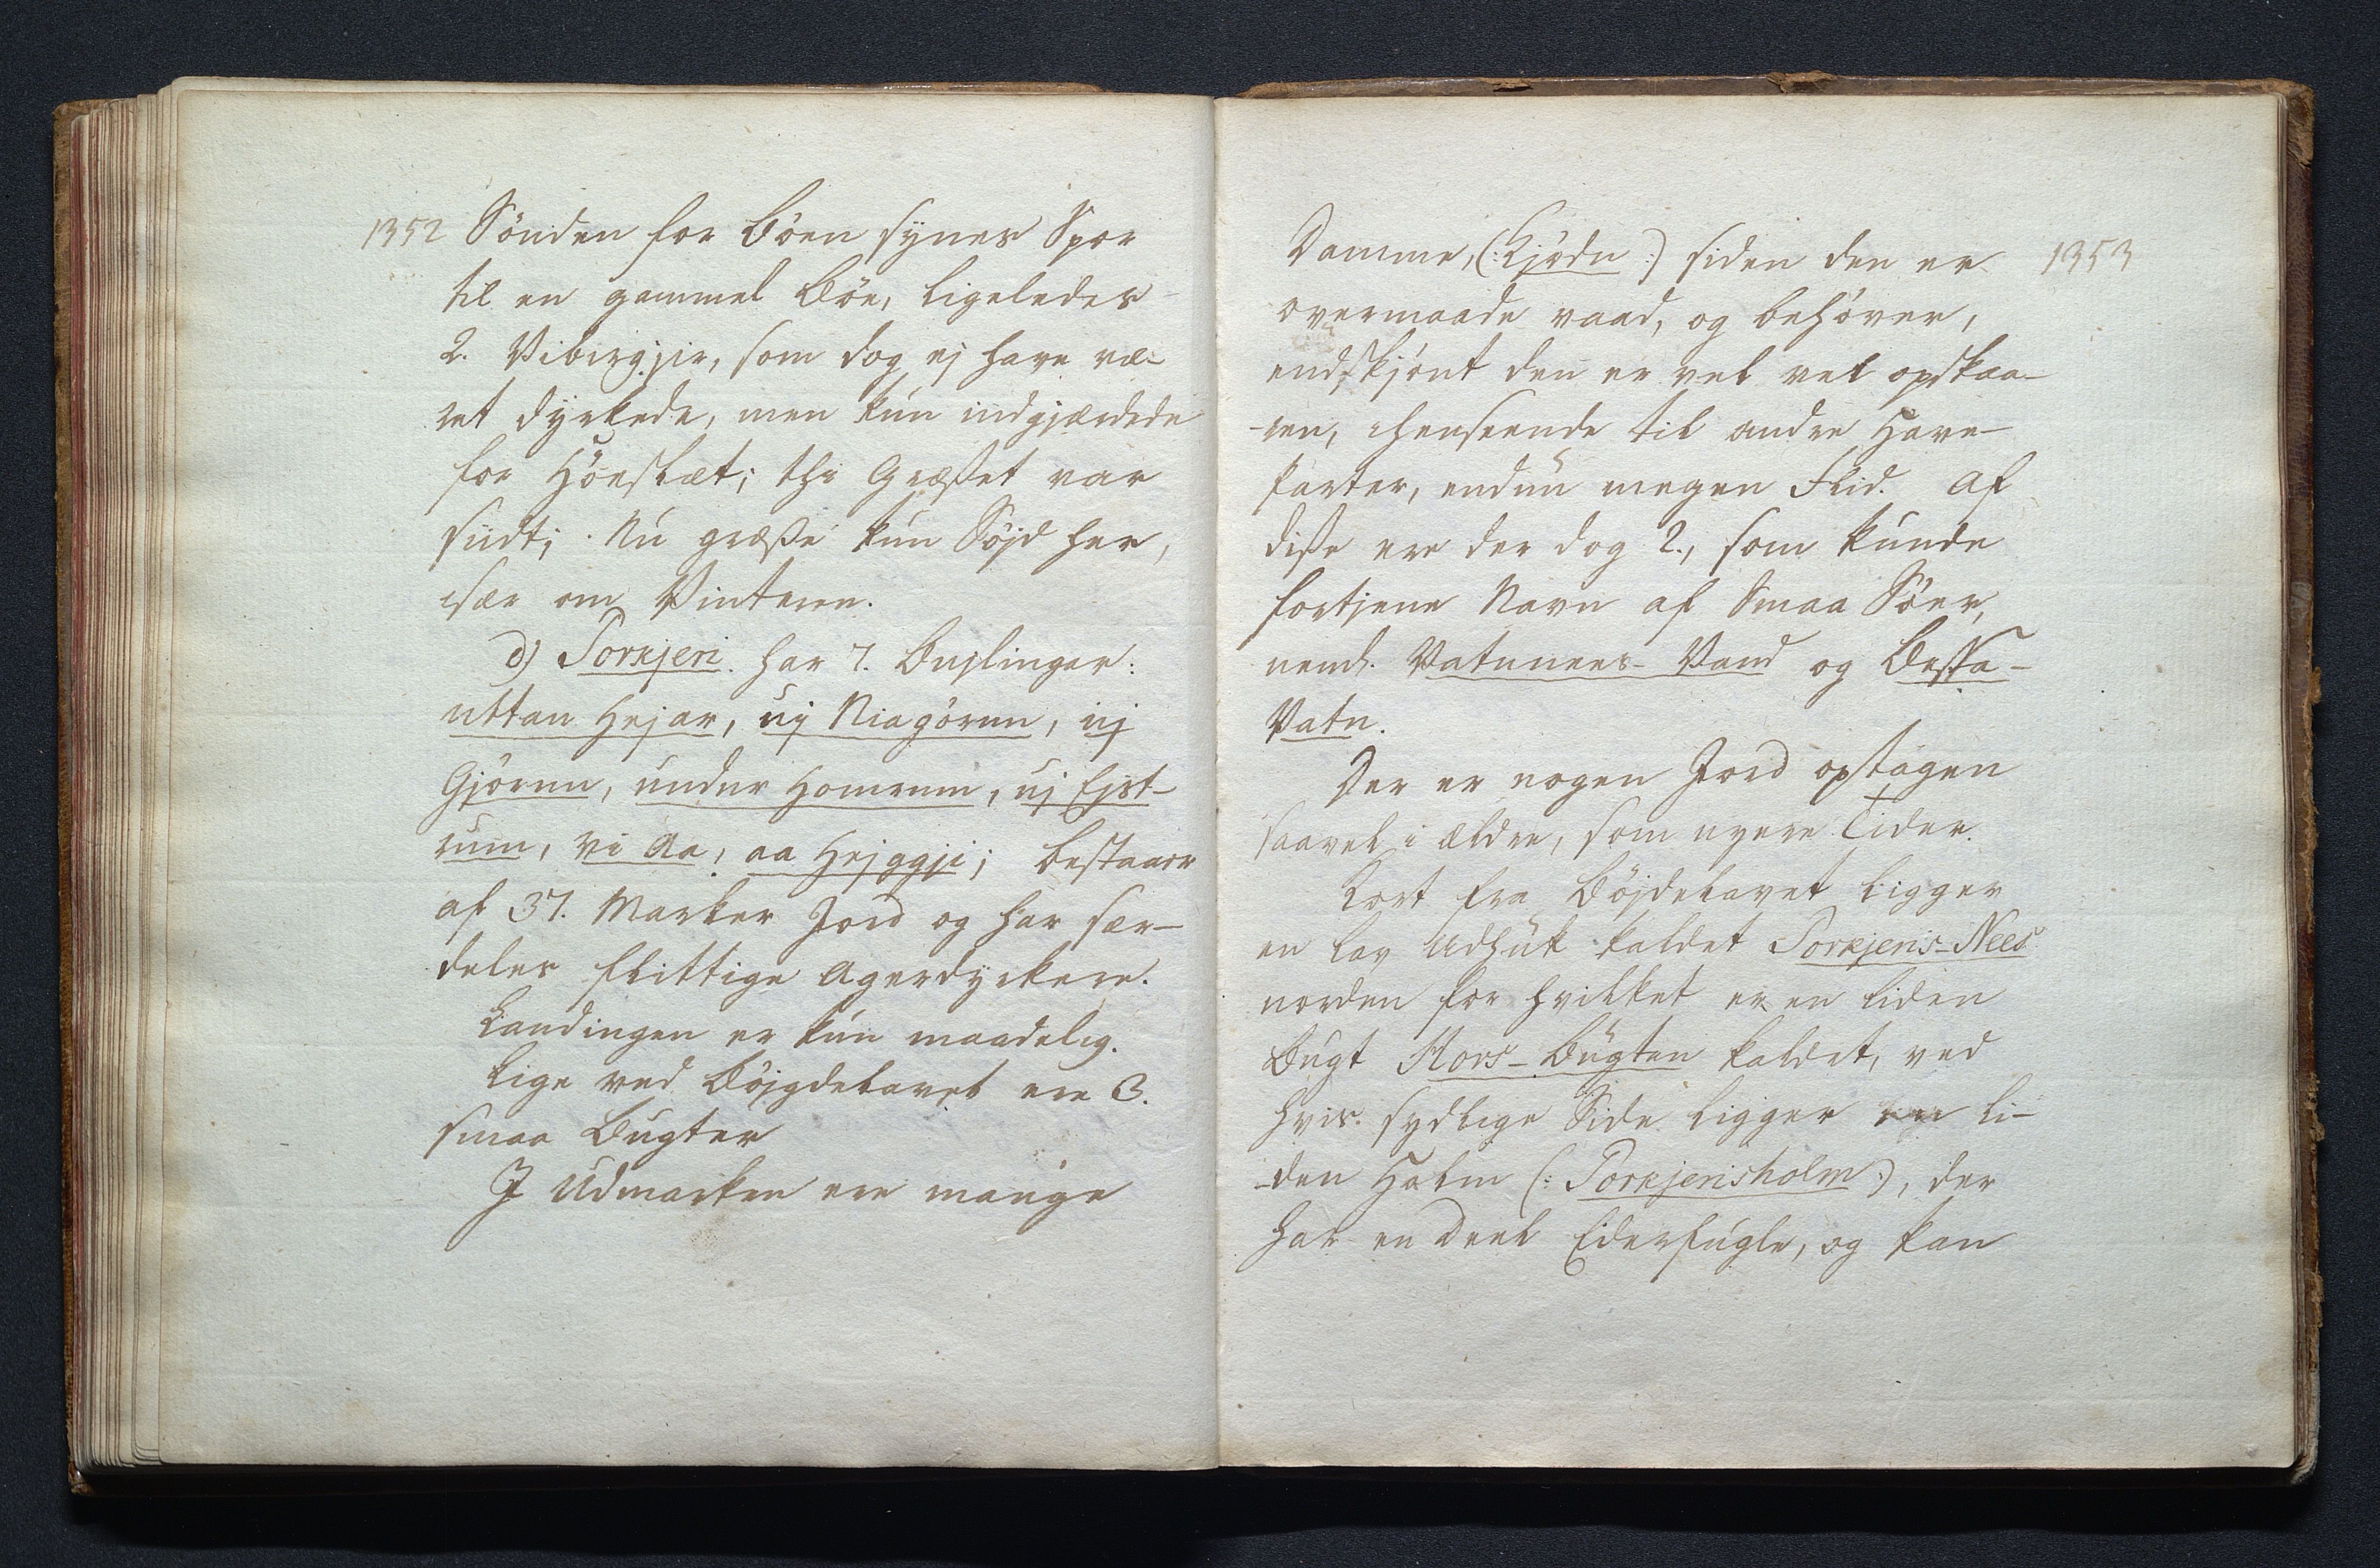 1352 Sönden for Böen synes Spor
til en gammel Böe, ligeledes
2. Vibirgjir, som dog ej have væ-
ret dyrkede, men kun indgjærdede
for Höeslæt; thi Græsset var
siidt; Nu græsse kun Söjd her,
især om Vinteren.
d) Porkjeri har 7. Bujlingar:
uttan Hejar, uj Niagörun, uj
Gjörun, undur Homrum, uj Ejst-
rum, vi Aa, aa Hejggji; bestaaer
af 37. Marker Jord og har sær-
deles flittige Agerdyrkere.
Landingen er kun maadelig.
Lige ved Böjgdelavet ere 3.
smaa Bugter
I Udmarken ere mange
Damme, (: Kjödn :) siden den er 1353
overmaade vaad, og behöver,
endskjönt den er vel vel opskaa-
ren, ihenseende til andre Have-
parter, endnu megen Flid. Af
disse ere der dog 2., som kunde
fortjene Navn af Smaa Söer,
neml. Vatnnees-Vand og Bessa-
Vatn.
Der er nogen Jord optagen
saavel i ældre, som nyere Tider.
Kort fra Böjdelavet ligger
en lav Udhuk kaldet Porkjeris-Nees
norden for hvilket er en liden
Bugt Hors-Bugten kaldet, ved
hvis sydlige Side ligger en li-
den Holm (: Porkjerisholm :), der
har en Deel Ederfugle, og kan